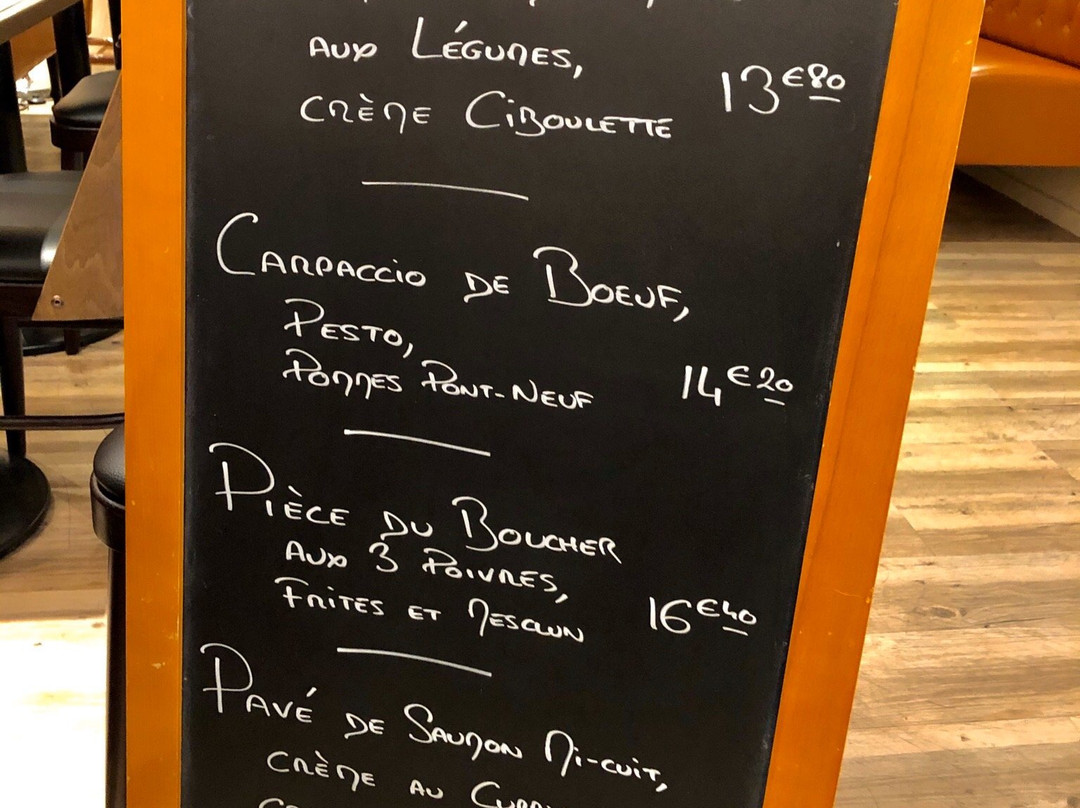 aux Légumes,
crème Ciboulette 13€80
Carpaccio de Boeuf,
Pesto,
Pommes Pont-Neuf 14€20
Pièce du Boucher
aux 3 Poivres,
Frites et Mesclun 16€40
Pavé de Saumon Mi-cuit,
crème au